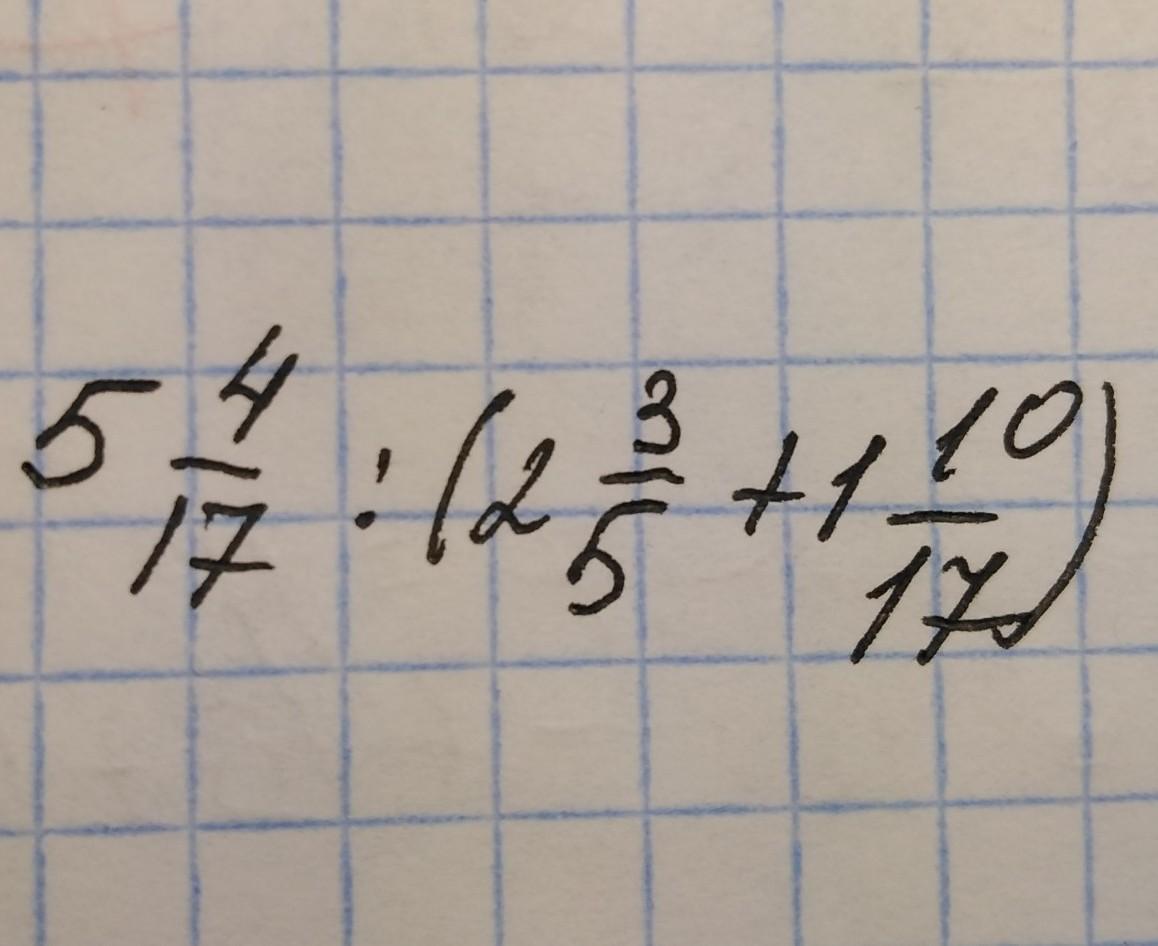 5 4/17 : (2 3/5 + 1 10/17)